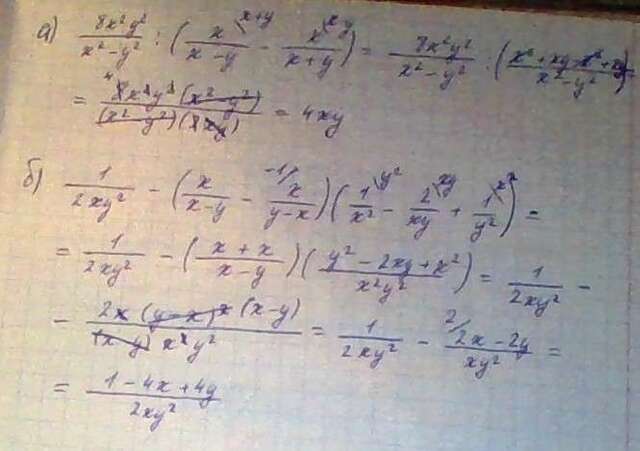 а) 8x²y² / x² - y² : ( x / x - y \ x+y - x / x + y \ x y ) = 8x²y² / x² - y² : ( x² + xy - x² + xy / x² - y² )
= 4 8x²y² (x² - y²) / (x² - y²) (xy) = 4xy
б) 1 / 2xy² - ( x / x - y - -1/ x / y - x ) ( 1 / x² \ y² - 2 / xy \ xy + 1 / y² \ x² ) =
= 1 / 2xy² - ( x + x / x - y ) ( y² - 2xy + x² / x²y² ) = 1 / 2xy² -
- 2x (y - x) (x - y) / (x - y) x²y² = 1 / 2xy² - 2/ 2x - 2y / xy² =
= 1 - 4x + 4y / 2xy²